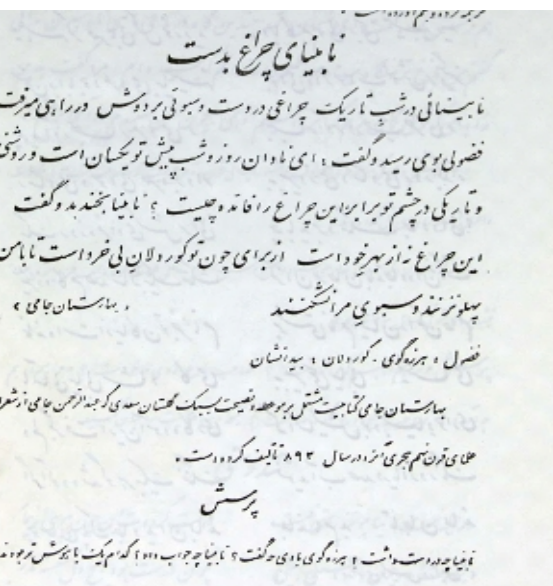 نابینای چراغ بدست
نابینائی در شب تاریک چراغی در دست و سبوئی بر دوش در راهی میرفت
فضولی بوی رسید و گفت : ای نادان روز و شب پیش تو یکسان است و روشنی
و تاریکی در چشم تو برابر این چراغ را فایده چیست ؟ نابینا بخندید و گفت
این چراغ نه از بهر خود است از برای چون تو کوردلان بی خرد است تا با من
پهلو نزنند و سبوی مرا نشکنند « بهارستان جامی »
فضول : هرزه گوی . کوردلان : بیدانشان
بهارستان جامی کتابیست مشتمل بر موعظه و نصیحت بسبک گلستان سعدی که عبدالرحمن جامی از شعرا
علمای قرن نهم هجری آنرا در سال ۸۹۲ تألیف کرده است .
پرسش
نابینا چه در دست داشت ؟ هرزه گوی باوی چه گفت ؟ نابینا چه جواب داد ؟ کدام یک با هوش تر بودند